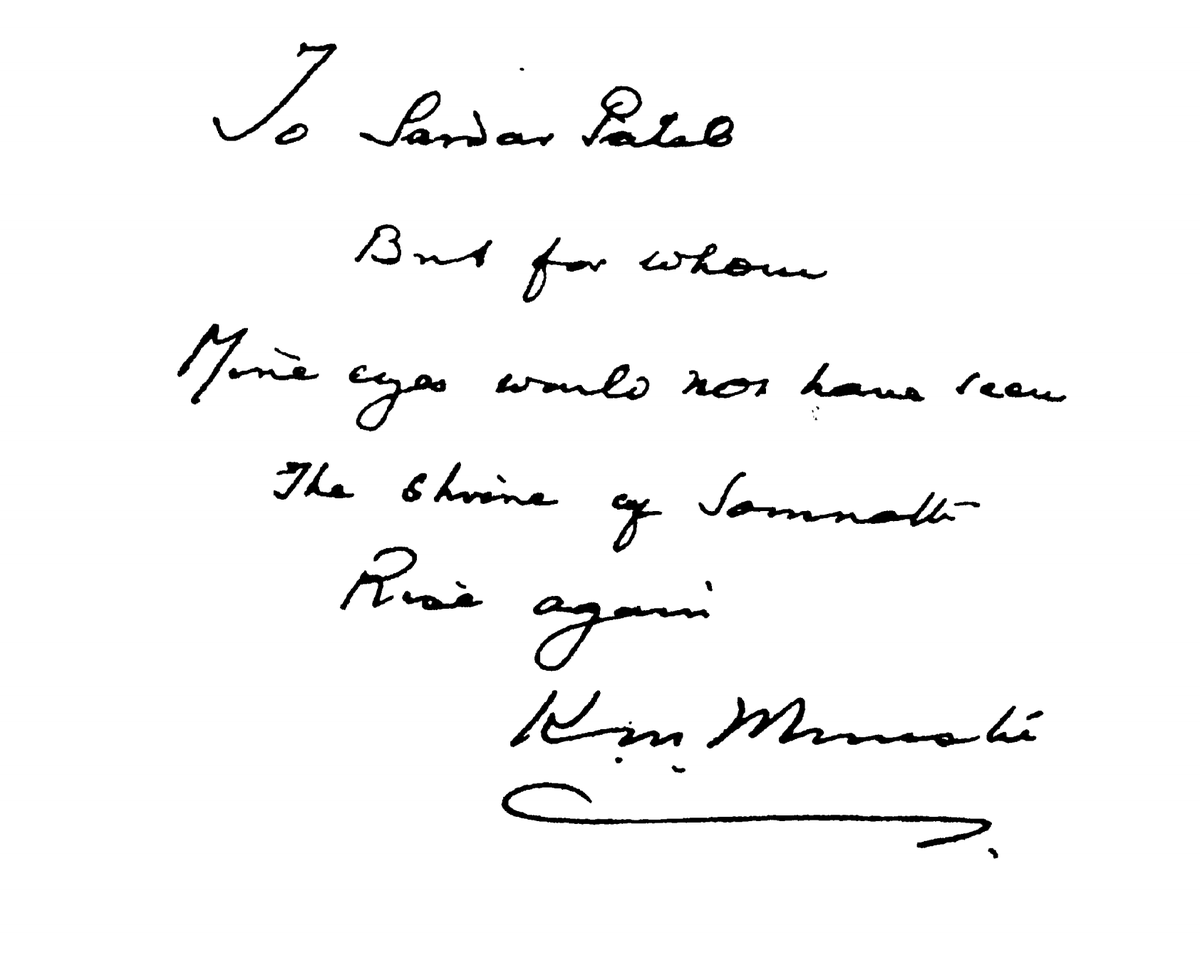 To Sardar Patel
But for whom
Mine eyes would not have seen
The shrine of Somnath
Rise again
K.M. Munshi